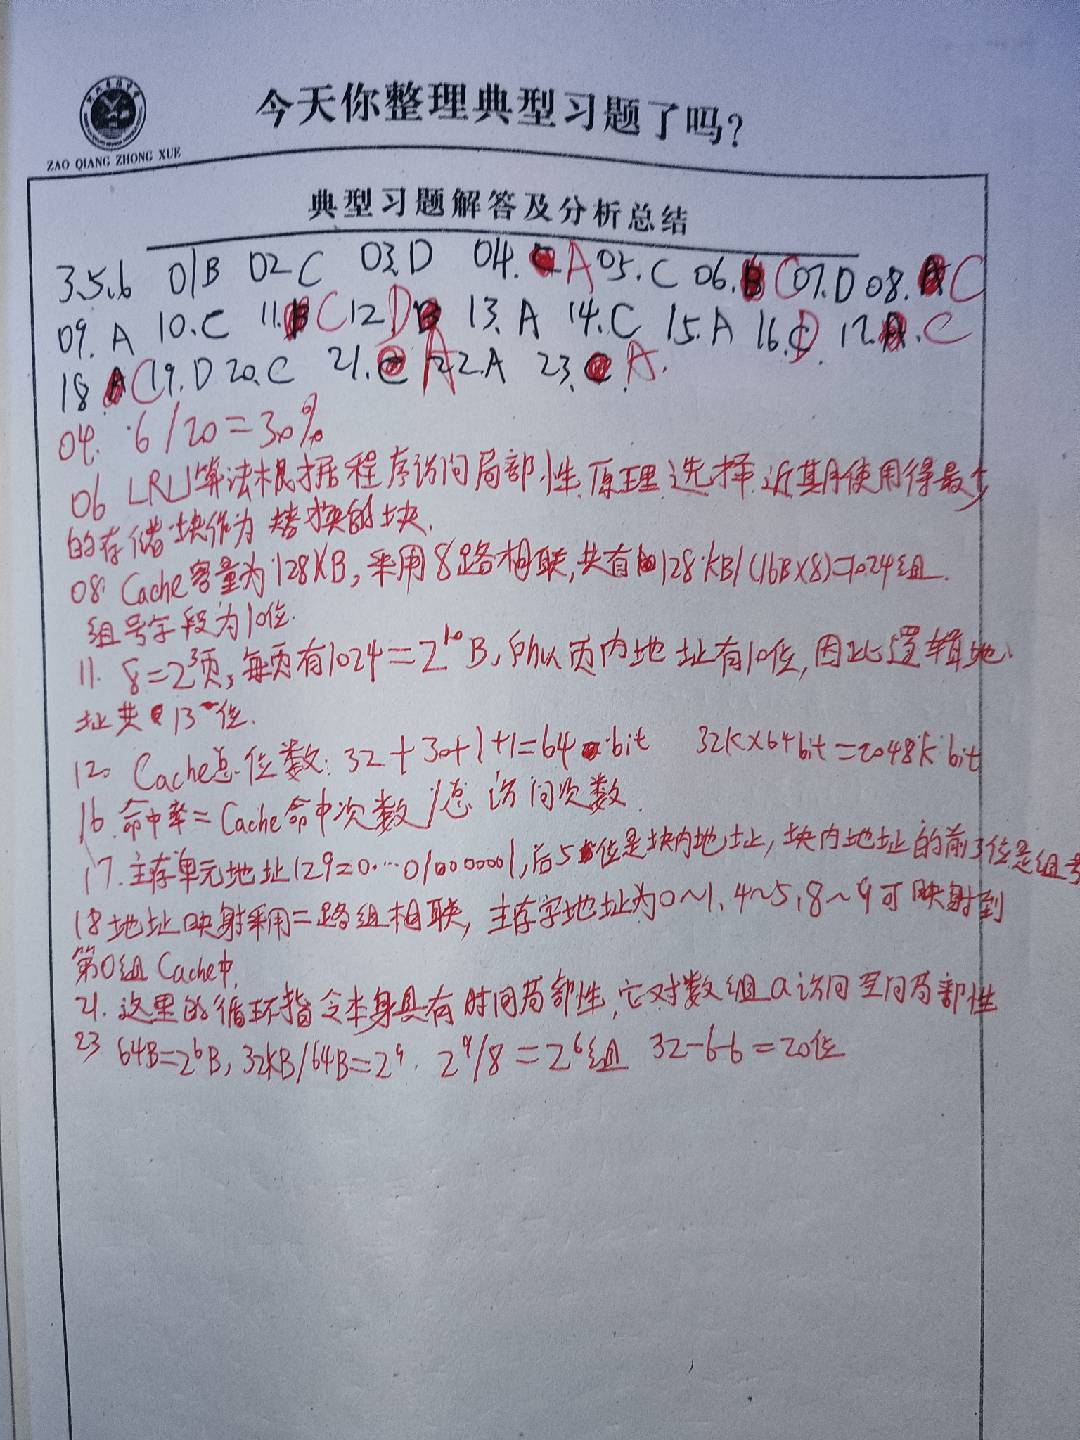 今天你整理典型习题了吗?
ZAO QIANG ZHONG XUE
典型习题解答及分析总结
3.5.6 01B 02C 03.D 04. A 05.C 06. C 07.D 08. C
09. A 10.C 11. C 12 D 13. A 14. C 15.A 16. D 17. C
18 C 19.D 20.C 21. A 22.A 23. A.
04. 6/20=30%
06 LRU算法根据程序访问局部性原理选择近期使用得最少
的存储块作为替换的块.
08. Cache容量为128KB,采用8路相联,共有128KB/(16B×8)=1024组.
组号字段为10位.
11. 8=2³页,每页有1024=2¹⁰B,所以页内地址有10位,因此逻辑地
址共13位.
12. Cache总位数:32+30+1+1=64bit 32K×64bit=2048K bit
16.命中率=Cache命中次数/总访问次数.
17.主存单元地址129=0…010000001,后5位是块内地址,块内地址的前3位是组号
18地址映射采用二路组相联,主存字地址为0~1,4~5,8~9可映射到
第0组Cache中.
21.这里的循环指令本身具有时间局部性,它对数组a访问空间局部性
23 64B=2⁶B,32KB/64B=2⁹. 2⁹/8=2⁶组 32-6-6=20位